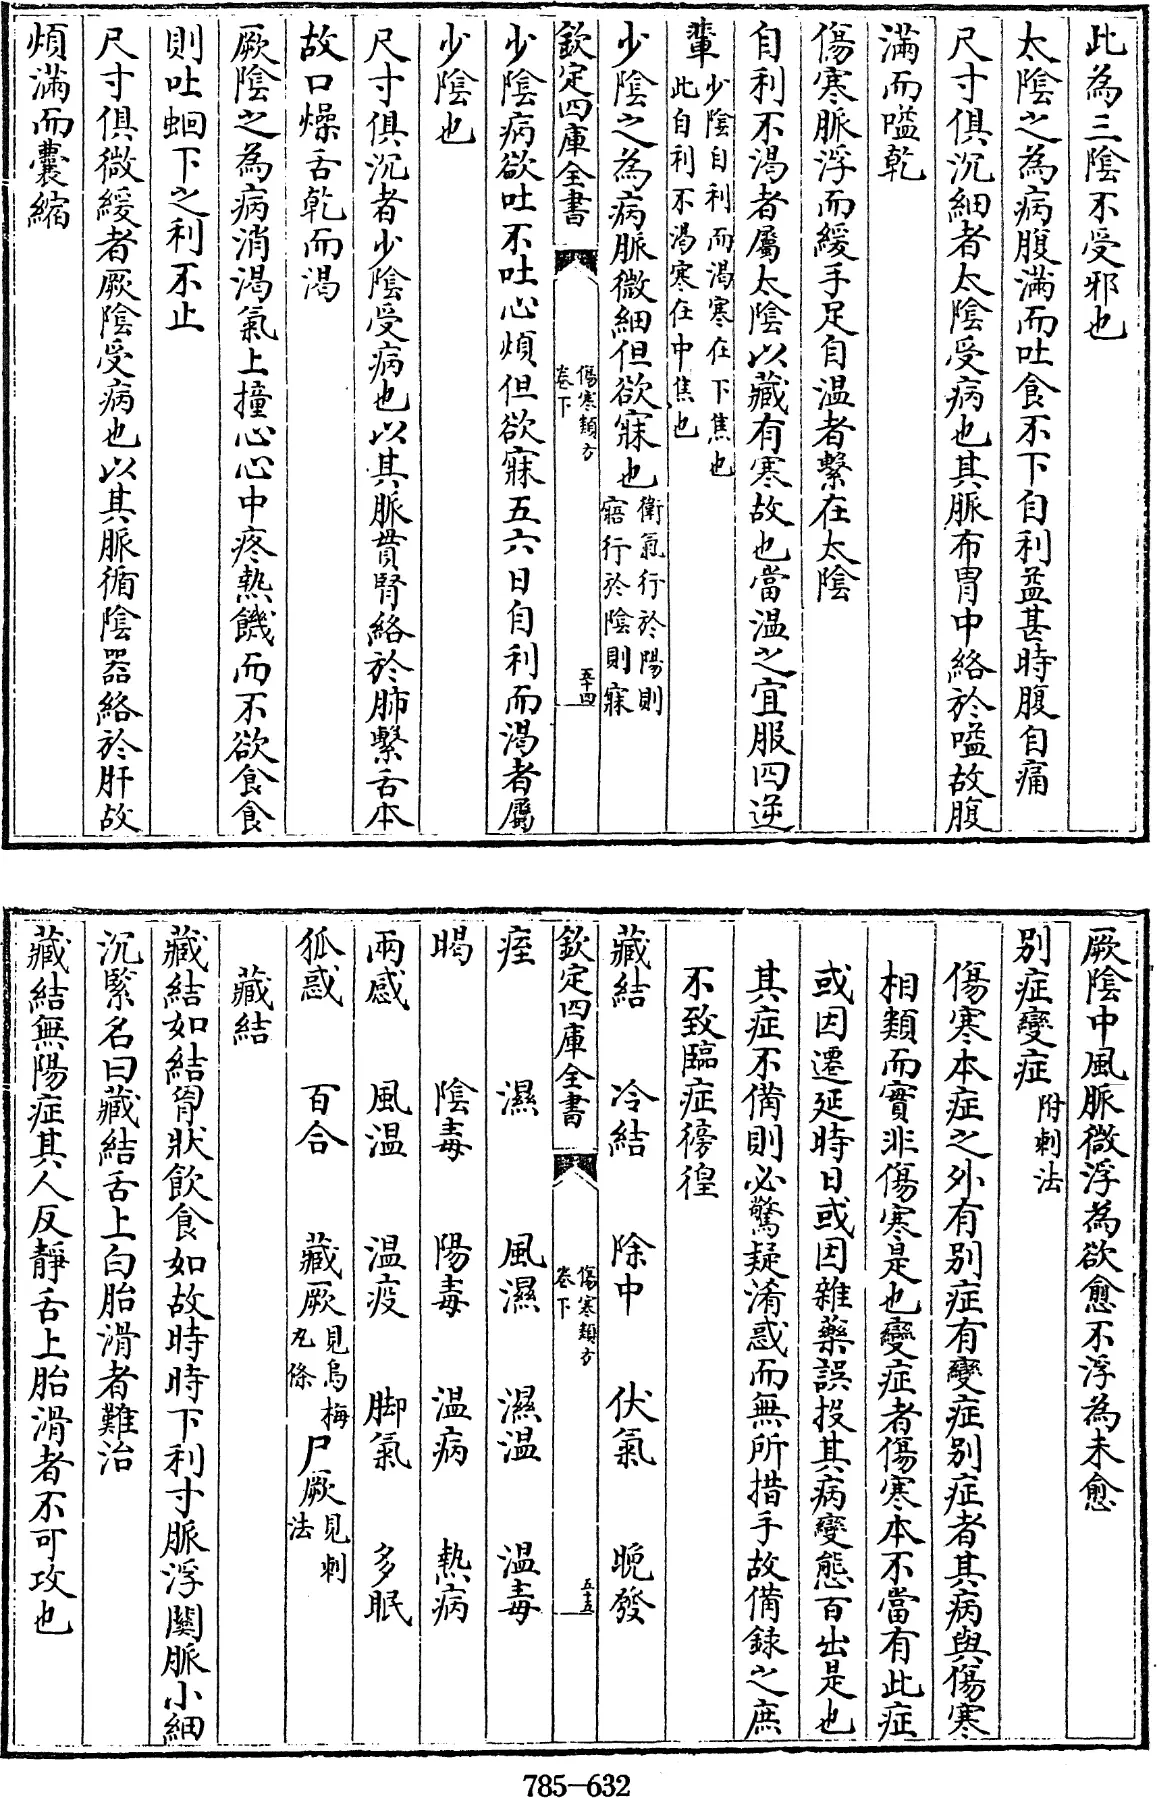 此為三陰不受邪也
太陰之為病腹滿而吐食不下自利益甚時腹自痛
尺寸俱沉細者太陰受病也其脈布胃中絡於嗌故腹
滿而嗌乾
傷寒脈浮而緩手足自溫者繫在太陰
自利不渴者屬太陰以藏有寒故也當温之宜服四逆
輩少陰自利而渴寒在下焦也此自利不渴寒在中焦也
少陰之為病脈微細但欲寐也衛氣行於陽則寤行於陰則寐
欽定四庫全書
傷寒類方
卷下
五十四
少陰病欲吐不吐心煩但欲寐五六日自利而渴者屬
少陰也
尺寸俱沉者少陰受病也以其脈貫腎絡於肺繫舌本
故口燥舌乾而渴
厥陰之為病消渴氣上撞心心中疼熱饑而不欲食食
則吐蛔下之利不止
尺寸俱微緩者厥陰受病也以其脈循陰器絡於肝故
煩滿而囊縮
厥陰中風脈微浮為欲愈不浮為未愈
別症變症附刺法
傷寒本症之外有別症有變症別症者其病與傷寒
相類而實非傷寒是也變症者傷寒本不當有此症
或因遷延時日或因雜藥誤投其病變態百出是也
其症不備則必驚疑淆惑而無所措手故備錄之庶
不致臨症徬徨
藏結 冷結 除中 伏氣 晚發
欽定四庫全書
傷寒類方
卷下
五十五
痓 濕 風濕 濕温 温毒
暍 陰毒 陽毒 温病 熱病
兩感 風温 温疫 脚氣 多眠
狐惑 百合 藏厥見烏梅丸條 尸厥見刺法
藏結
藏結如結胷狀飲食如故時時下利寸脈浮關脈小細
沉緊名曰藏結舌上白胎滑者難治
藏結無陽症其人反靜舌上胎滑者不可攻也
785-632